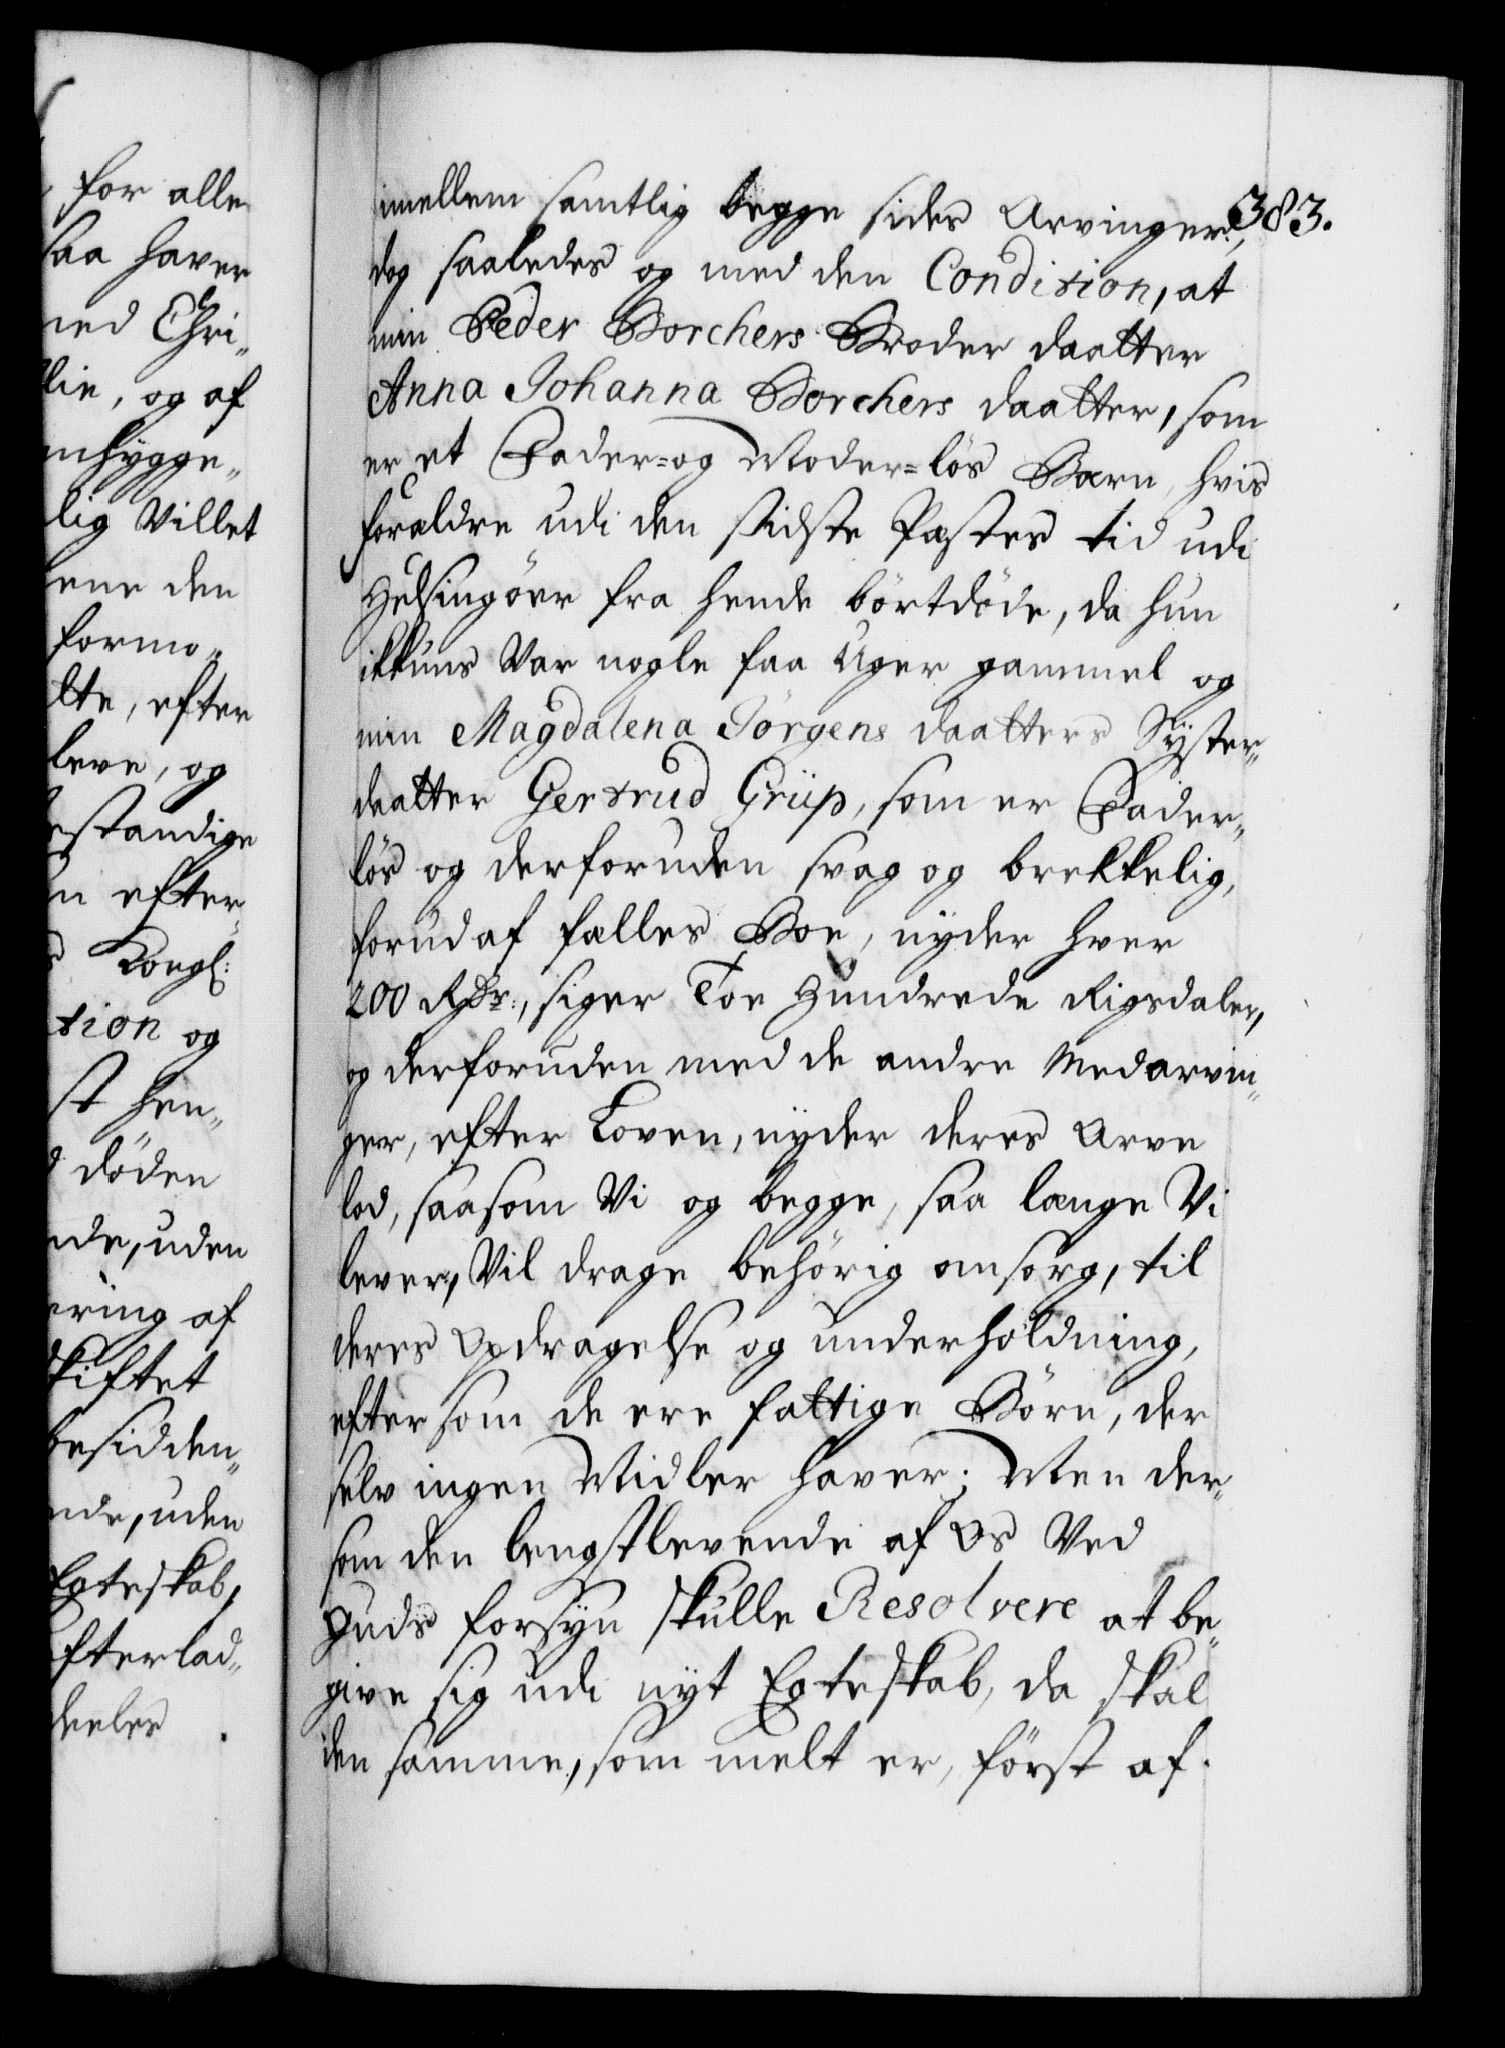 for alle
saa haver
med Chri„
lie, og af
mhÿgge„
lig Villet
ene den
formo„
lte, efter
leve, og
estandige
n efter„
Kongl:
tion og
st hen„
döden
nde, uden
ering af
skiftet
besidden„
nde, uden
Egteskab,
efterlad„
deeles
383.
imellem samtlig begge sides Arvinger,
dog saaledes og med den Condition, at
min Peder Borchers Broder daatter
Anna Johanna Borchers daatter, som
er et Fader= og Moder=lös Barn, hvis
foraldre udi den sidste Pestes tid udi
Helsingöer fra hende börtdöde, da hun
ikkuns Var nogle faa Uger gammel og
min Magdalena Jörgens daatters Sÿster„
daatter Gertrud Grüp, som er Fader„
lös og derforuden svag og brekkelig,
forud af falles Boe, nÿder hver
200 Rdr:, siger Toe Hundrede Rigsdaler,
og derforuden med de andre Medarvin„
ger, efter Loven, nÿder deres Arve
lod, saasom Vi og begge, saa længe Vi
lever, Vil drage behörig omsorg, til
deres Opdragelse og underholdning,
eftersom de ere fattige Börn, der
selv ingen Midler haver; Men der„
som den lengstlevende af Os Ved
Guds forsÿn skulle Resolvere at be„
give sig udi nÿt Egteskab, da skal
den samme, som melt er, först af.